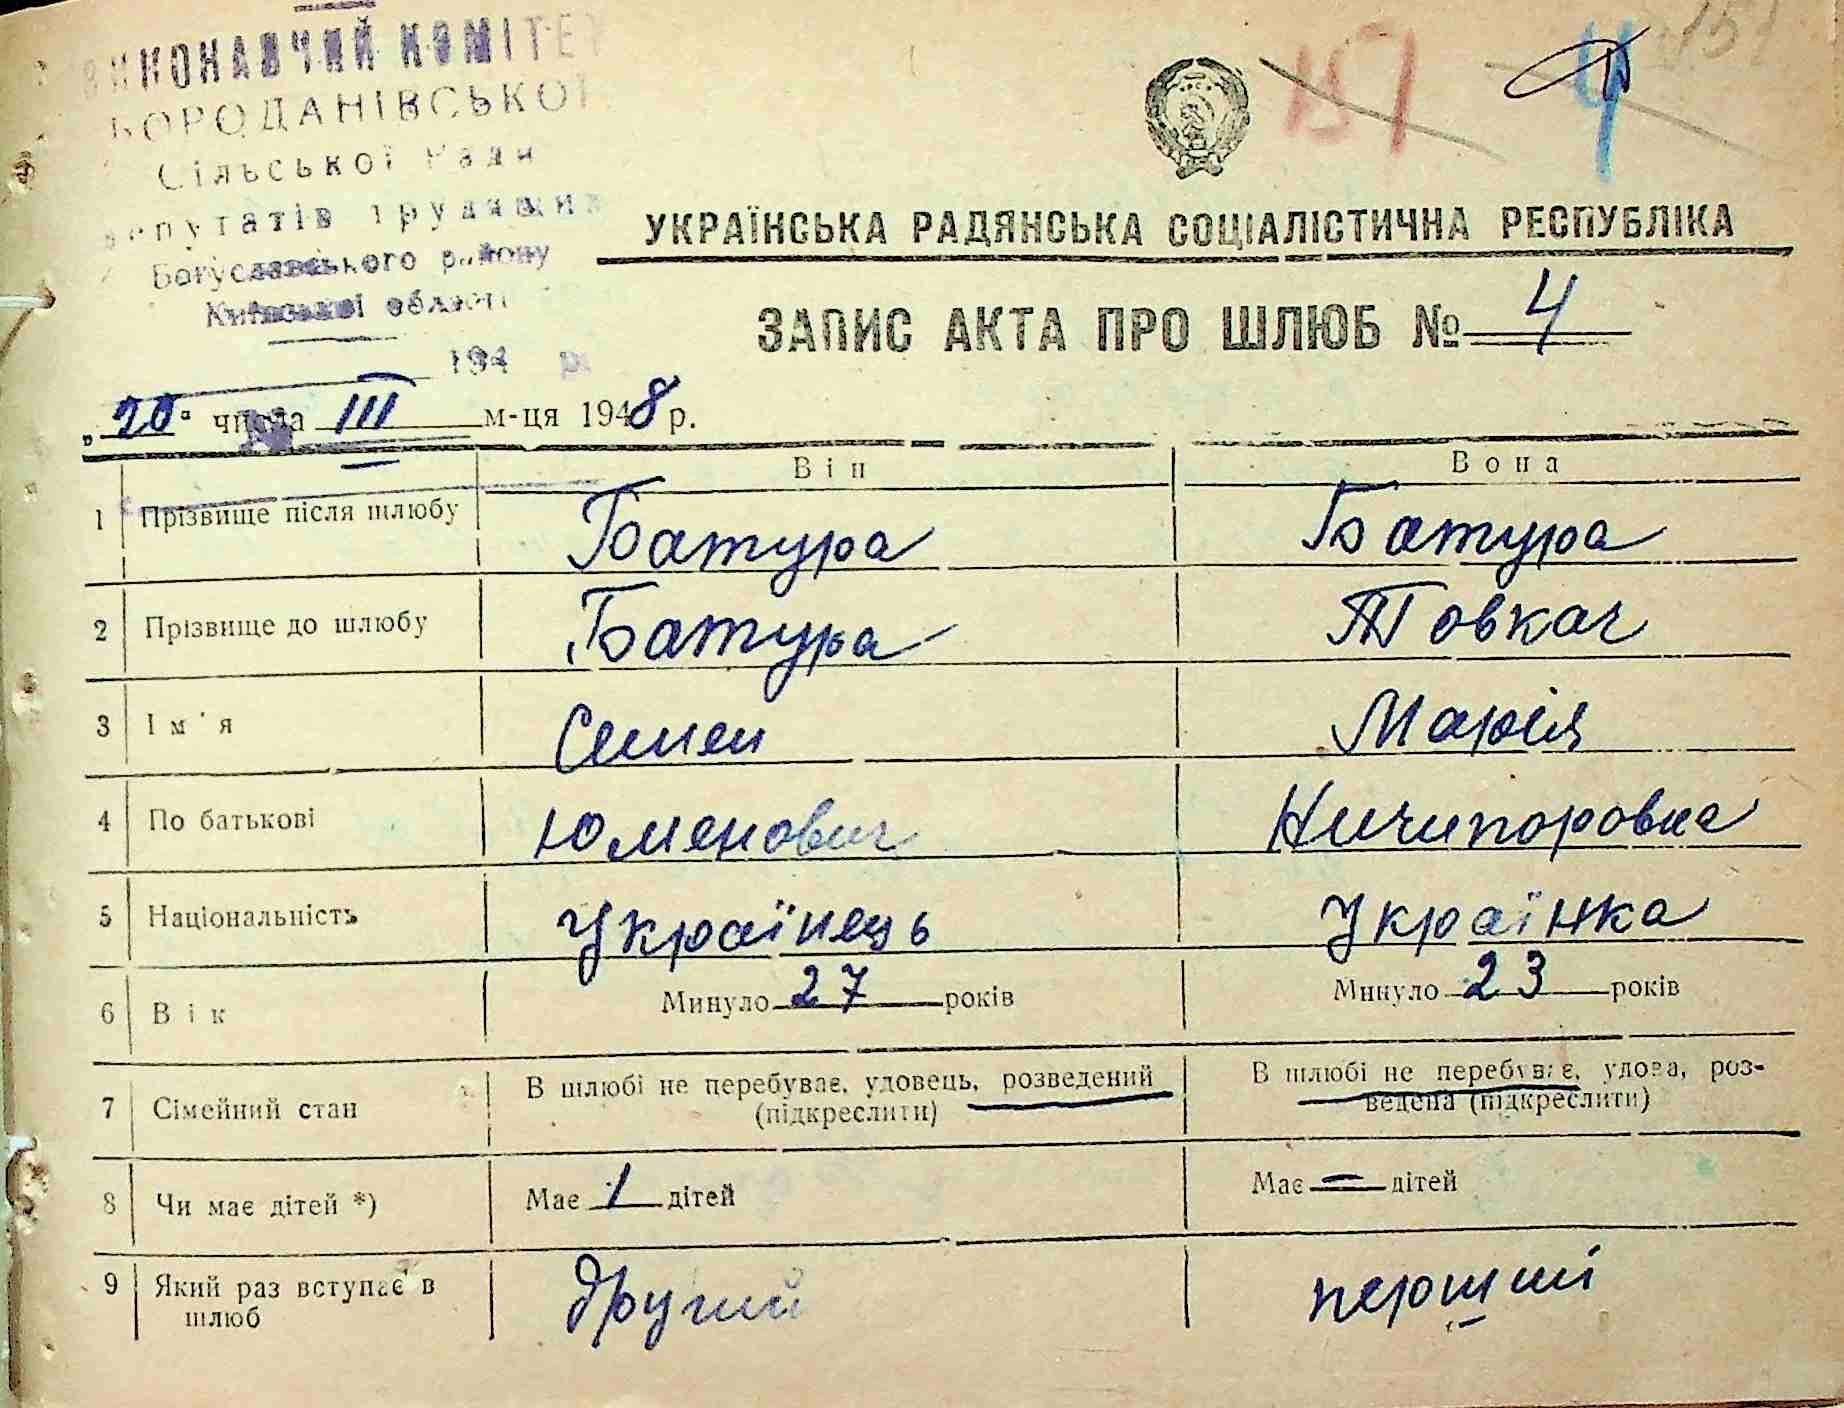 ВИКОНАВЧИЙ КОМІТЕТ
БОРОДАНІВСЬКОЇ
Сільської Ради
депутатів трудящих
Богуславського району
Київської області
194 р.
157 4 151
УКРАЇНСЬКА РАДЯНСЬКА СОЦІАЛІСТИЧНА РЕСПУБЛІКА
ЗАПИС АКТА ПРО ШЛЮБ № 4
„20" числа III м-ця 1948 р.
Він Вона
1 Прізвище після шлюбу Батура Батура
2 Прізвище до шлюбу Батура Товкач
3 Ім'я Семен Марія
4 По батькові Юменович Ничипоровна
5 Національність Українець Українка
6 Вік Минуло 27 років Минуло 23 років
7 Сімейний стан В шлюбі не перебуває, удовець, розведений (підкреслити) В шлюбі не перебуває, удова, розведена (підкреслити)
8 Чи має дітей *) Має 1 дітей Має — дітей
9 Який раз вступає в шлюб другий перший